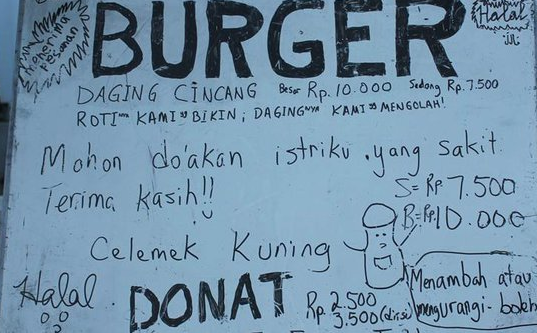 Menerima pesanan
BURGER
Halal
DAGING CINCANG Besar Rp. 10.000 Sedang Rp. 7.500
ROTI KAMI BIKIN; DAGING KAMI MENGOLAH!
Mohon do'akan istriku yang sakit.
Terima kasih!!
S = Rp 7.500
B = Rp. 10.000
Celemek Kuning
Halal
DONAT Rp. 2.500
3.500 (diisi)
Menambah atau
mengurangi - boleh